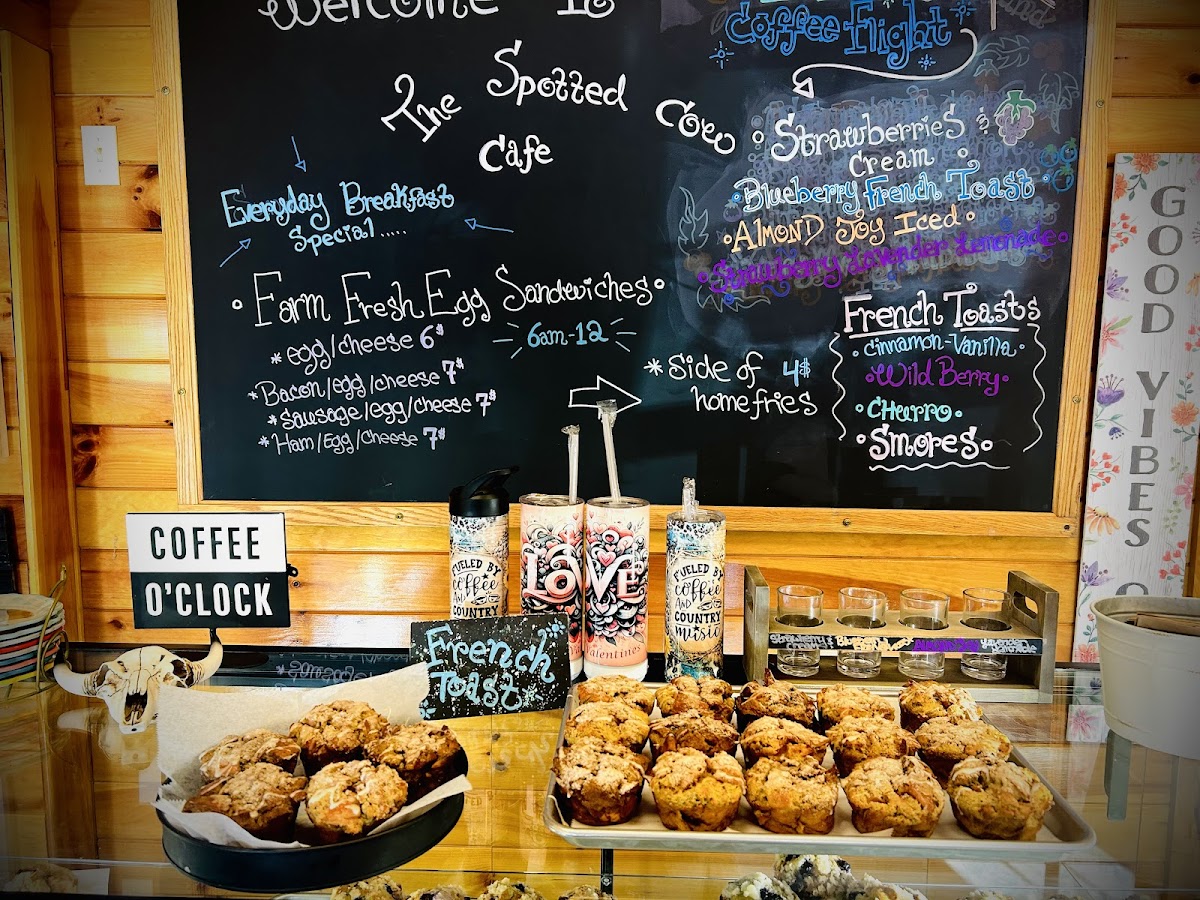 Welcome To
The Spotted Cow
Cafe
Everyday Breakfast
Special.....
Farm Fresh Egg Sandwiches
6am-12
*egg/cheese 6$
*Bacon/egg/cheese 7$
*Sausage/egg/cheese 7$
*Ham/Egg/Cheese 7$
*Side of 4$
homefries
Coffee Flight
Strawberries
Cream
Blueberry French Toast
Almond Joy Iced
Strawberry Lavender Lemonade
French Toasts
Cinnamon-Vanilla
Wild Berry
Churro
Smores
GOOD VIBES
COFFEE
O'CLOCK
FUELED BY
coffee
AND
COUNTRY
LOVE
Valentines
FUELED BY
coffee
AND
COUNTRY
music
French
Toast